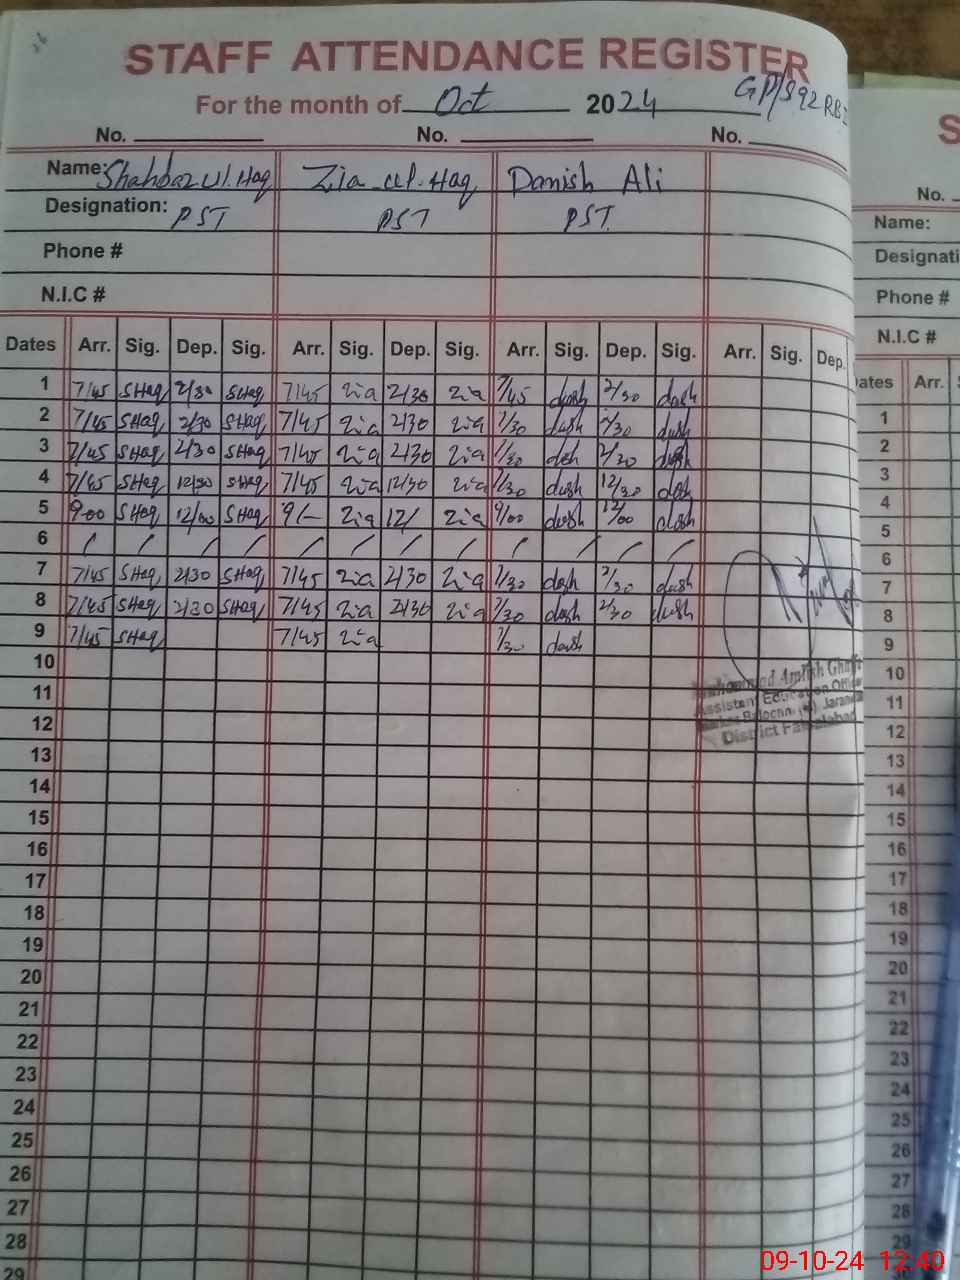 STAFF ATTENDANCE REGISTER
For the month of Oct 2024 GP/S 92 RB
No. No. No.
Name: Shahbaz Ul. Haq Zia ul. Haq Danish Ali
Designation: PST PST PST.
Phone #
N.I.C #
Dates Arr. Sig. Dep. Sig. Arr. Sig. Dep. Sig. Arr. Sig. Dep. Sig. Arr. Sig. Dep.
1 7/45 SHaq 2/30 SHaq 7/45 Zia 2/30 Zia 7/45 dash 2/30 dash
2 7/45 SHaq 2/30 SHaq 7/45 Zia 2/30 Zia 7/30 dash 2/30 dash
3 7/45 SHaq 2/30 SHaq 7/45 Zia 2/30 Zia 7/30 dsh 2/30 dash
4 7/45 SHaq 12/30 SHaq 7/45 Zia 12/30 Zia 7/30 dash 12/30 dash
5 9-00 SHaq 12/00 SHaq 9/- Zia 12/ Zia 9/00 dash 12/00 dash
6 / / / / / / / / / / / /
7 7/45 SHaq 2/30 SHaq 7/45 Zia 2/30 Zia 7/30 dash 2/30 dash
8 7/45 SHaq 2/30 SHaq 7/45 Zia 2/30 Zia 7/30 dash 2/30 dash
9 7/45 SHaq 7/45 Zia 7/30 dash
10
11
12
13
14
15
16
17
18
19
20
21
22
23
24
25
26
27
28
29
Assistant Education Officer
District Faisalabad
S
No.
Name:
Designati
Phone #
N.I.C #
ates Arr. S
1
2
3
4
5
6
7
8
9
10
11
12
13
14
15
16
17
18
19
20
21
22
23
24
25
26
27
28
29
09-10-24 12:40